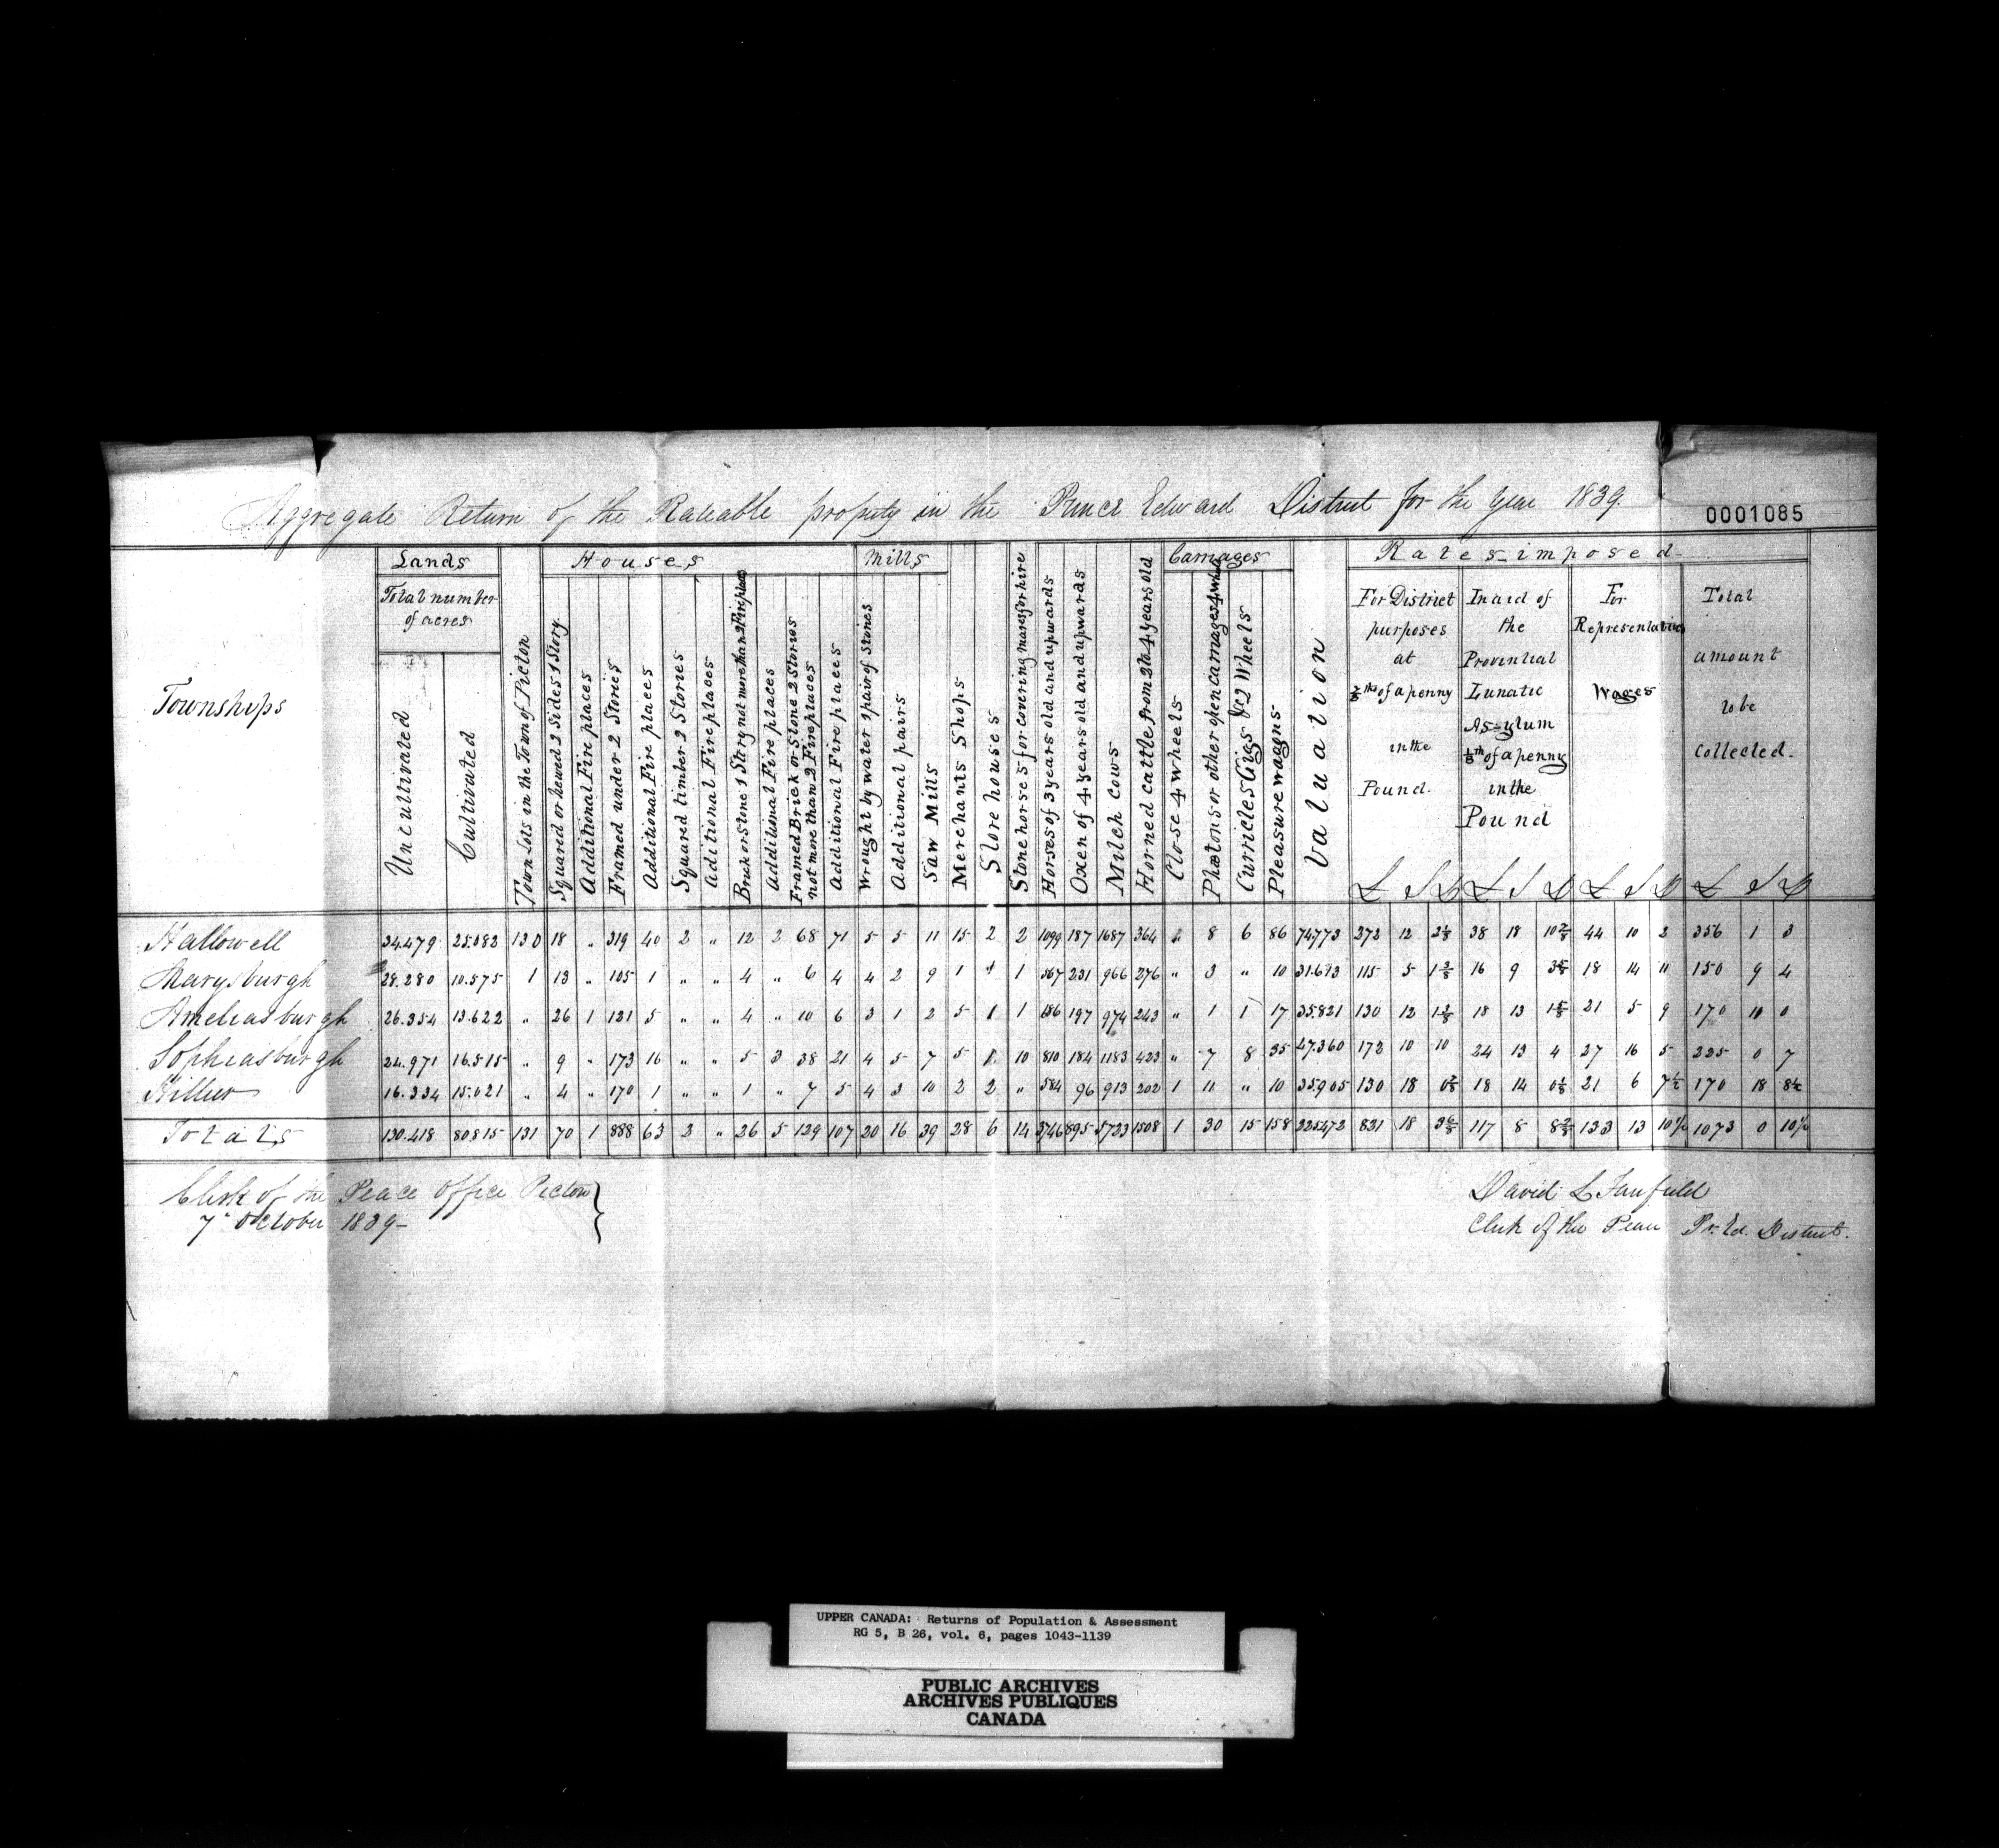 Aggregate Return of the Rateable property in the Prince Edward District for the Year 1839.
0001085
Townships
Lands
Total number of acres
Uncultivated
Cultivated
Town Lots in the Town of Picton
Houses
Squared or hewed 2 Sides 1 Story
Additional Fire places
Framed under 2 Stories
Additional Fire places
Squared timber 2 Stories
Additional Fire places
Brick or Stone 1 Story not more than 2 Fire places
Additional Fire places
Framed Brick or Stone 2 Stories not more than 2 Fire places
Additional Fire places
Mills
Wrought by water 1 pair of Stones
Additional pairs
Saw Mills
Merchants Shops
Store houses
Stone horses for covering mares for hire
Horses of 3 years old and upwards
Oxen of 4 years old and upwards
Milch cows
Horned cattle from 2 to 4 years old
Carriages
Close 4 wheels
Phætons or other open carriages 4 wheels
Curricles Gigs &c 2 Wheels
Pleasure wagons
Valuation
Rates imposed
For District purposes at ⅞ths of a penny in the Pound.
In aid of the Provential Lunatic Asylum ⅛th of a penny in the Pound
For Representatives Wages
Total amount to be Collected.
£ S D £ S D £ S D £ S D
Hallowell 34.479 25.082 130 18 " 319 40 2 " 12 2 68 71 5 5 11 15 2 2 1099 187 1687 364 8 6 86 74,773 272 12 38 18 44 10 2 356 1 3
Marysburgh 28.280 10.575 1 13 " 105 1 " " 4 " 6 4 4 2 9 1 1 567 231 966 276 " 3 " 10 31.613 115 5 16 9 18 14 11 150 9 4
Ameliasburgh 26.354 13.622 " 26 1 121 5 " " 4 " 10 6 3 1 2 5 1 1 686 197 974 243 " 1 1 17 35.821 130 12 18 13 21 5 9 170 10 0
Sophiasburgh 24.971 16.515 " 9 " 173 16 " " 5 3 38 21 4 5 7 5 10 810 184 1183 423 " 7 8 35 47.360 172 10 10 24 13 4 27 16 5 225 0 7
Hillier 16.334 15.021 " 4 " 170 1 " " 1 " 7 5 4 3 10 2 2 " 584 96 913 202 1 11 " 10 35,905 130 18 18 14 21 6 7½ 170 18 8½
Totals 130.418 80815 131 70 1 888 63 2 " 26 5 129 107 20 16 39 28 6 14 3746 895 5723 1508 1 30 15 158 225472 821 18 117 8 133 13 10½ 1073 0 10½
Clerk of the Peace Office Picton
7th October 1839-
David L Fairfield
Clerk of the Peace Pr. Ed. District.
UPPER CANADA: Returns of Population & Assessment
RG 5, B 26, vol. 6, pages 1043-1139
PUBLIC ARCHIVES
ARCHIVES PUBLIQUES
CANADA